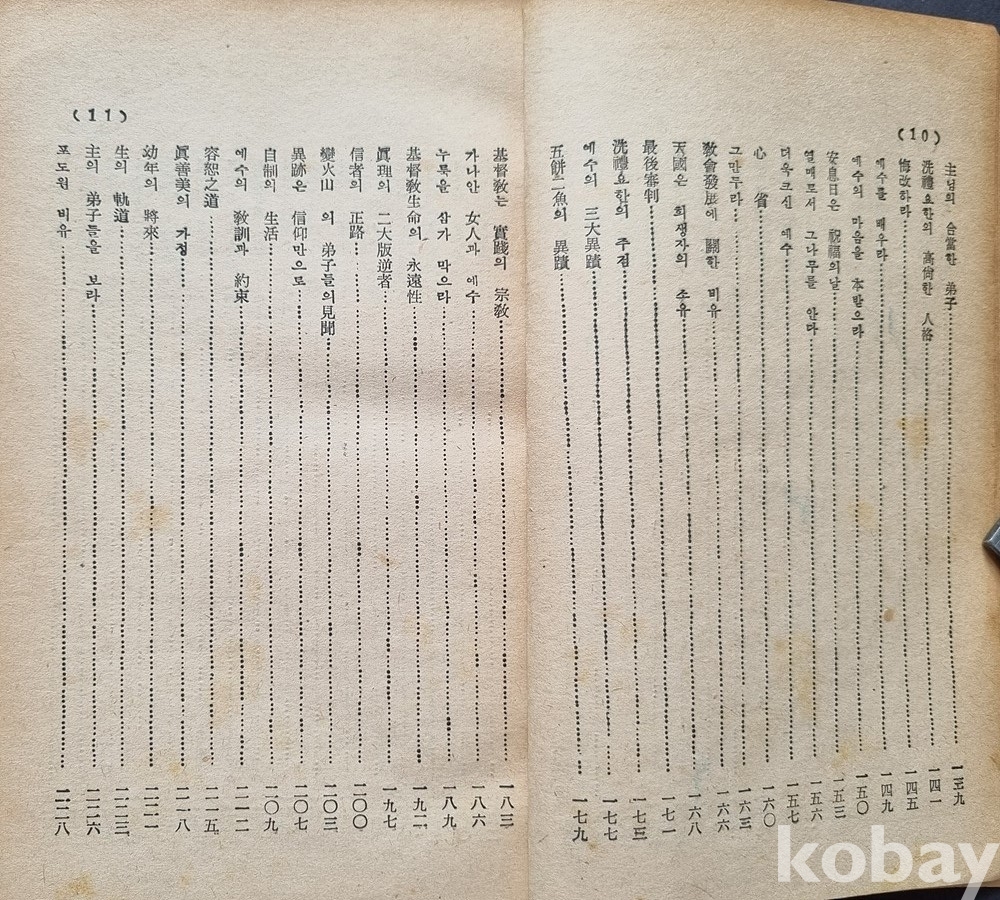 (10)
主님의 合當한 弟子 一三九
洗禮요한의 高尙한 人格 一四一
悔改하라 一四五
예수를 배우라 一四九
예수의 마음을 本받으라 一五〇
安息日은 祝福의날 一五三
열매로서 그나무를 안다 一五六
더욱크신 예수 一五七
心省 一六〇
그만두라 一六三
敎會發展에 關한 비유 一六六
天國은 희생자의 소유 一六八
最後審判 一七一
洗禮요한의 주검 一七三
예수의 三大異蹟 一七七
五餠二魚의 異蹟 一七九
(11)
基督敎는 實踐의 宗敎 一八三
가나안 女人과 예수 一八六
누룩을 삼가 막으라 一八九
基督敎生命의 永遠性 一九二
眞理의 二大版逆者 一九七
信者의 正路 二〇〇
變火山 의 弟子들의見聞 二〇三
異跡은 信仰만으로 二〇七
自制의 生活 二〇九
예수의 敎訓과 約束 二一二
容恕之道 二一五
眞善美의 가정 二一八
幼年의 將來 二二一
生의 軌道 二二三
主의 弟子들을 보라 二二六
포도원 비유 二二八
kobay